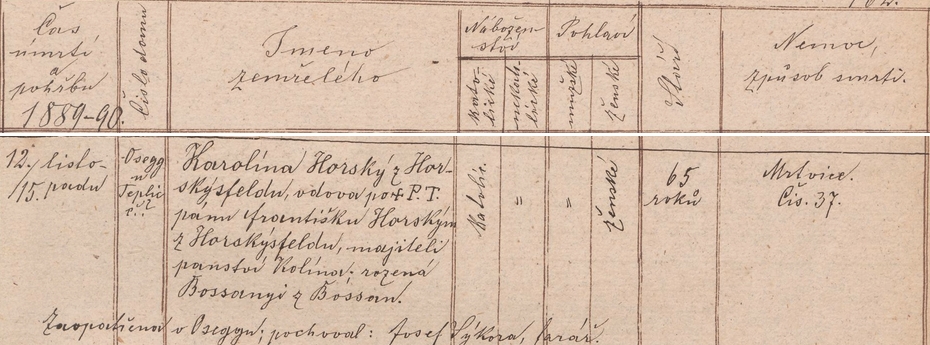 Čas
úmrtí
a
pohřbu
1889-90.
Číslo domu
Jmeno
zemřelého
Nábožen-
ství
kato-
lické
nekato-
lické
Pohlaví
mužské
ženské
Stáří
Nemoc,
způsob smrti.
12./ listo-
/15. padu
Osegg
u
Teplic
č.?
Karolina Horský z Hor-
skýsfeldu, vdova po † P. T.
panu Františku Horském
z Horskýsfeldu, majiteli
panství Kolína; rozená
Bossanyi z Bossan.
Katolic.
=
=
ženské
65
roků
Mrtvice.
Čís. 37.
Zaopatřena v Oseggu; pochoval: Josef Sýkora, farář.